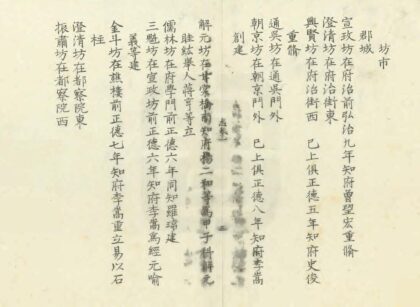 坊市
郡城
宣政坊在府治前弘治九年知府曾望宏重脩
澄清坊在府治街東
興賢坊在府治街西 已上俱正德五年知府史俊
重脩
通吳坊在通吳門外
朝京坊在朝京門外 已上俱正德八年知府李嵩
創建
解元坊在 知府 二和等為甲子科解元
眭紘舉人蔣亨等立
儒林坊在府學門前正德六年同知羅瑋建
三魁坊在宣政坊前正德六年知府李嵩為經元喻
義等建
金斗坊在熱樓前正德七年知府李嵩重立易以石
柱
澄清坊在都察院東
振肅坊在都察院西